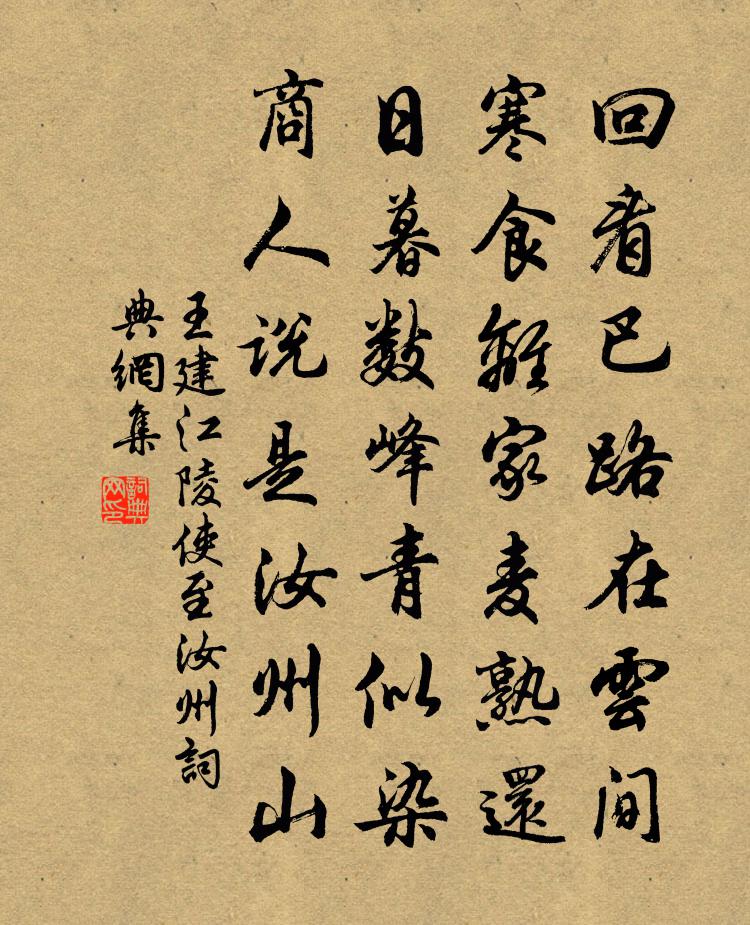 回看巴路在雲間
寒食離家麦熟還
日暮数峰青似染
商人说是汝州山
王建江陵使至汝州詞
典網集
詞典网印